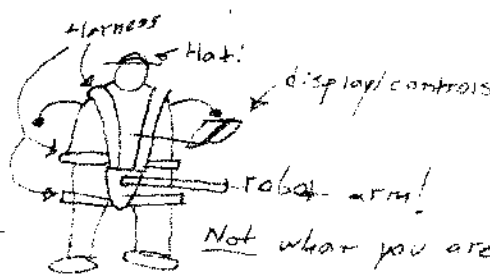 Harness
Hat!
display/controls
robot arm!
Not what you are